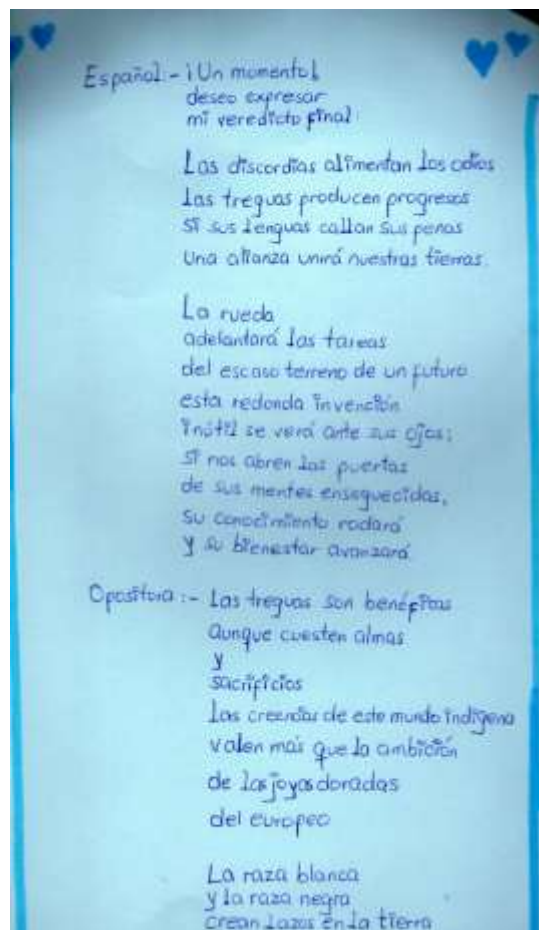 Español:- ¡Un momento!
deseo expresar
mi veredicto final:
Las discordias alimentan los odios
las treguas producen progresos
si sus lenguas callan sus penas
Una alianza unirá nuestras tierras.
La rueda
adelantará las tareas
del escaso terreno de un futuro
esta redonda invención
inútil se verá ante sus ojos;
si nos abren las puertas
de sus mentes enseguecidas,
su conocimiento rodará
y su bienestar avanzará
Opositora:- Las treguas son benéficas
aunque cuesten almas
y
sacrificios
las creencias de este mundo indígena
valen más que la ambición
de las joyas doradas
del europeo
La raza blanca
y la raza negra
crean lazos en la tierra